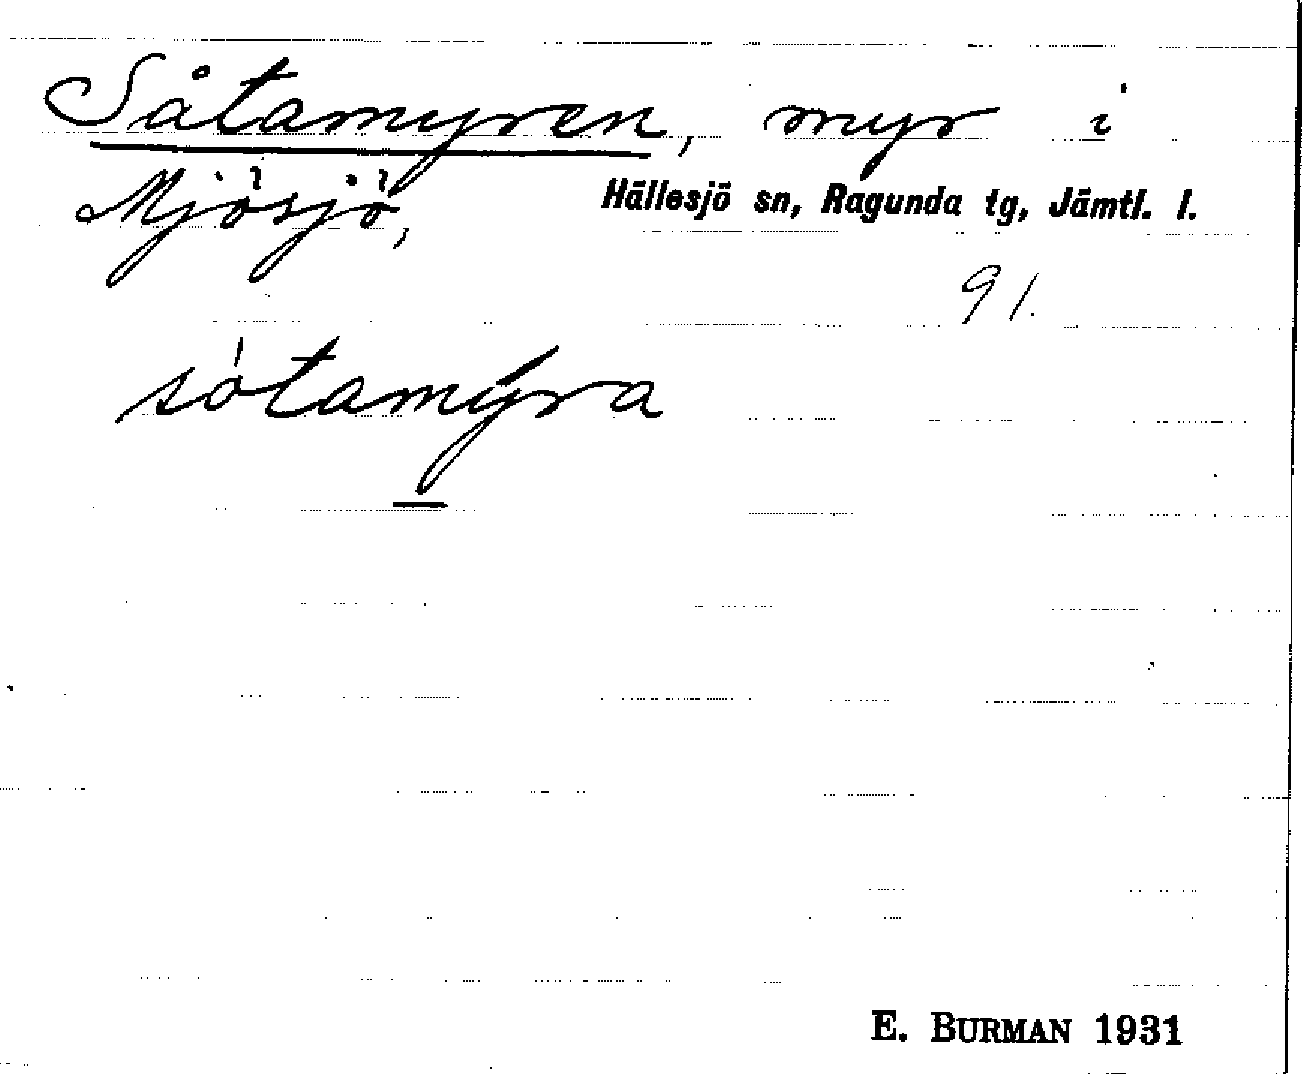 Såtamyren, myr i
Mjösjö, Hällesjö sn, Ragunda tg, Jämtl. l.
91.
sótamýra
E. BURMAN 1931